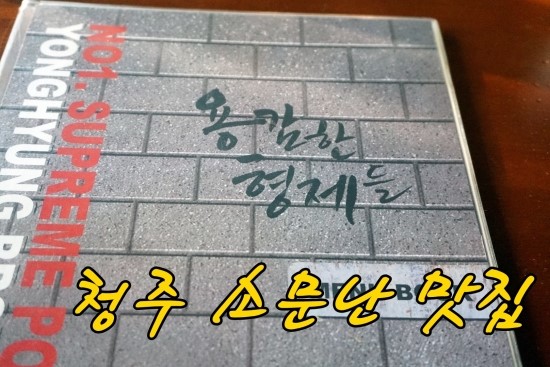 NO1. SUPREME PO
YONGHYUNG BRO
용감한
형제들
MENU BOOK
청주 소문난 맛집